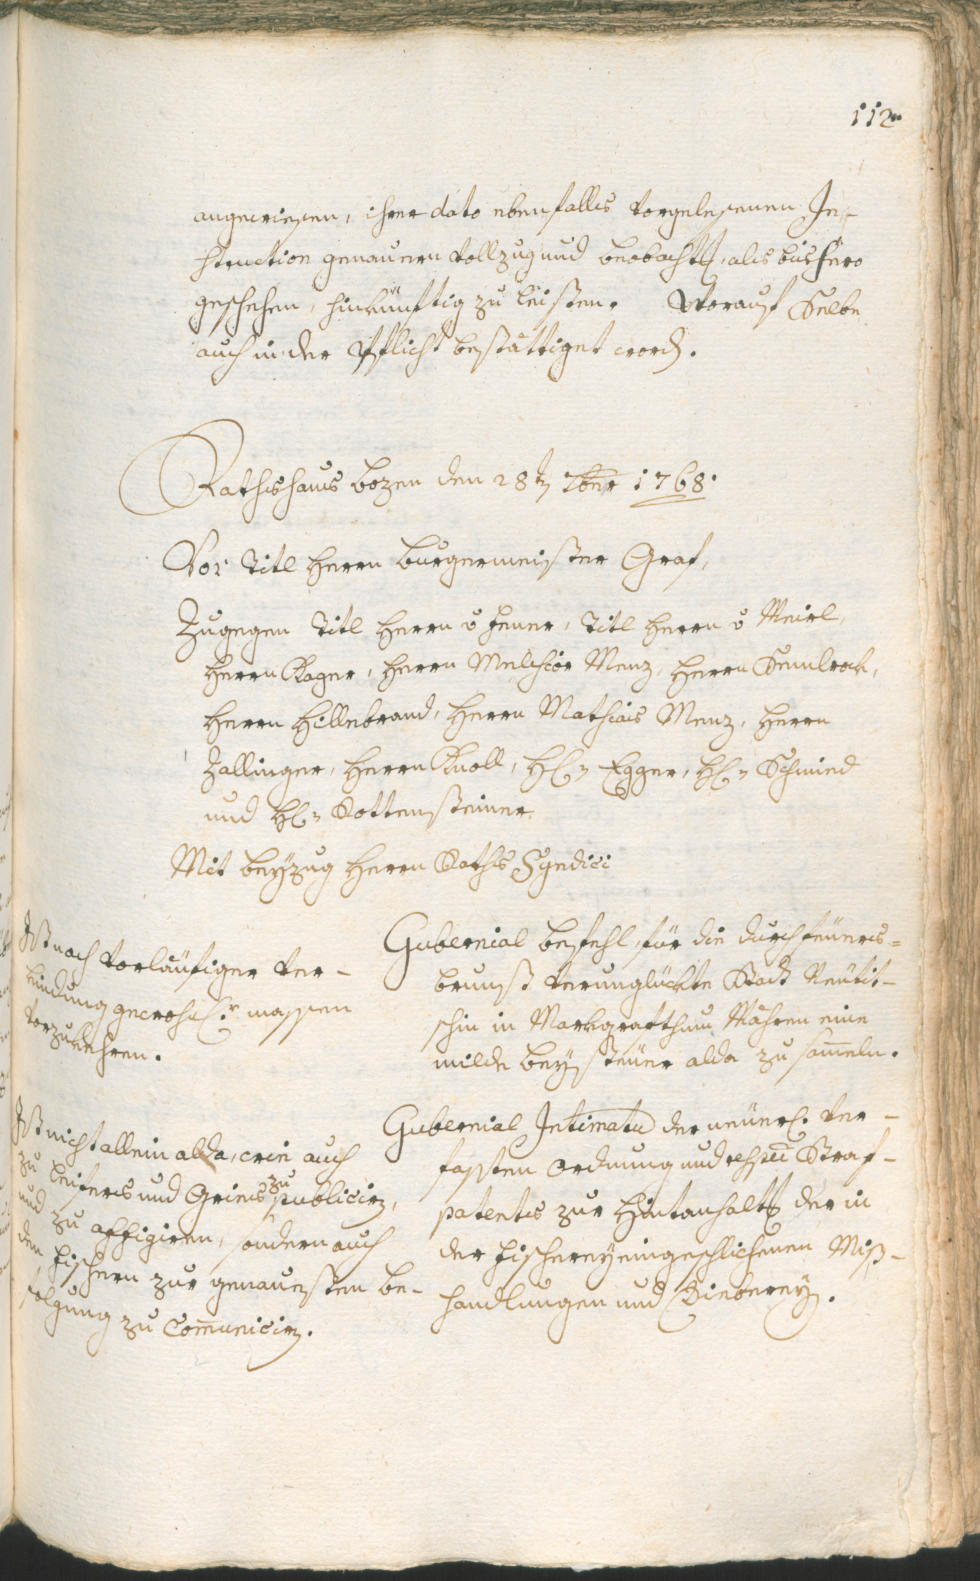 112.
angewiesen, ihrer dato ebenfalls vorgelesenen In-
struction genauern Vollzug und beobachtg, als bishero
geschehen, hinkünftig zu leisten. Worauf Selbe
auch in der Pflicht bestättiget word.
Rathshaus bozen den 28t 7ber 1768.
Vor Titl Herrn burgermeister Graf,
Zugegen Titl Herrn v Jenner, Titl Herrn v Meirl,
Herrn Kager, Herrn Melchior Menz, Herrn Semlrock,
Herrn Hillebrand, Herrn Mathias Menz, Herrn
Zallinger, Herrn Knoll, H: Egger, H: Schmied
und H: Rottensteiner
Mit beyzug Herrn Raths Syndici
Gubernial befehl, für die durch feuers=
brunst verunglückte Stadt Neutit-
schin in Markgrafthum Mähren eine
milde beysteuer alda zu sameln.
Ist nach vorläufiger ver-
kündung gewohnl.r massen
vorzukehren.
Gubernial Intimatu der neuerl. ver-
fassten Ordnung und respec Straf-
patents zur Hintanhaltg der in
der fischerey eingeschlichenen Miß-
handlungen und Dieberey.
Ist nicht allein alda, wie auch
zu Leifers und Gries zu publicirn,
und zu affigiren, sondern auch
den fischern zur genauesten be-
folgung zu Comunicirn.